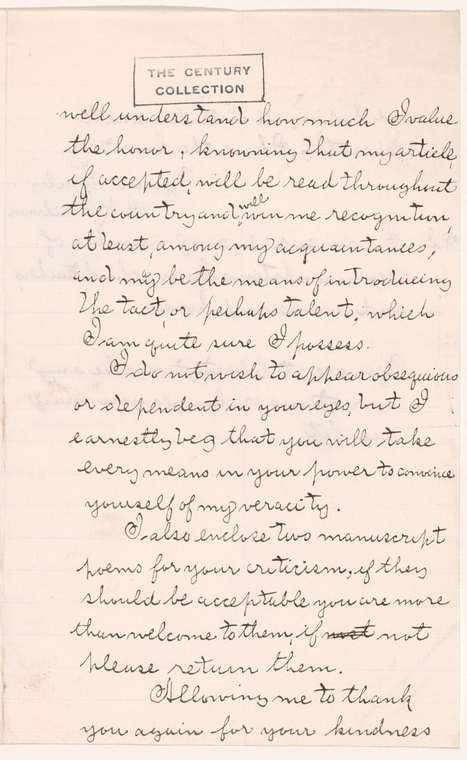 THE CENTURY
COLLECTION
well understand how much I value
the honor, knowning that my article,
if accepted, will be read throughout
the country and, will win me recognition,
at least, among my acquaintances,
and may be the means of introducing
the tact, or perhaps talent, which
I am quite sure I possess.
I do not wish to appear obsequious
or dependent in your eyes, but I
earnestly beg that you will take
every means in your power to convince
yourself of my veracity.
I also enclose two manuscript
poems for your criticism, if they
should be acceptable you are more
than welcome to them, if not
please return them.
Allowing me to thank
you again for your kindness